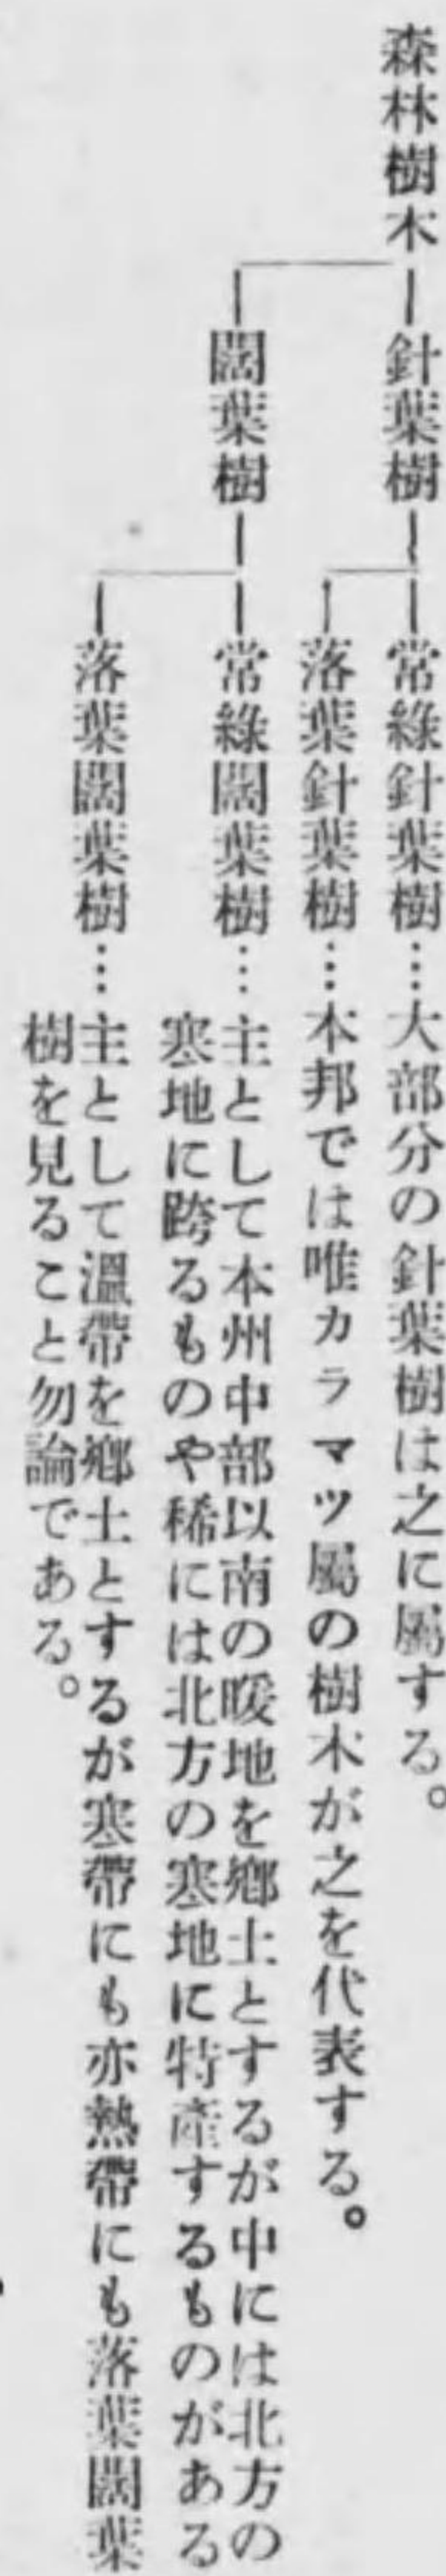 森林樹木
針葉樹
常綠針葉樹…大部分の針葉樹は之に屬する。
落葉針葉樹…本邦では唯カラマツ屬の樹木が之を代表する。
闊葉樹
常綠闊葉樹…主として本州中部以南の暖地を鄕土とするが中には北方の
寒地に跨るものや稀には北方の寒地に特產するものがある
落葉闊葉樹…主として溫帶を鄕土とするが寒帶にも亦熱帶にも落葉闊葉
樹を見ること勿論である。